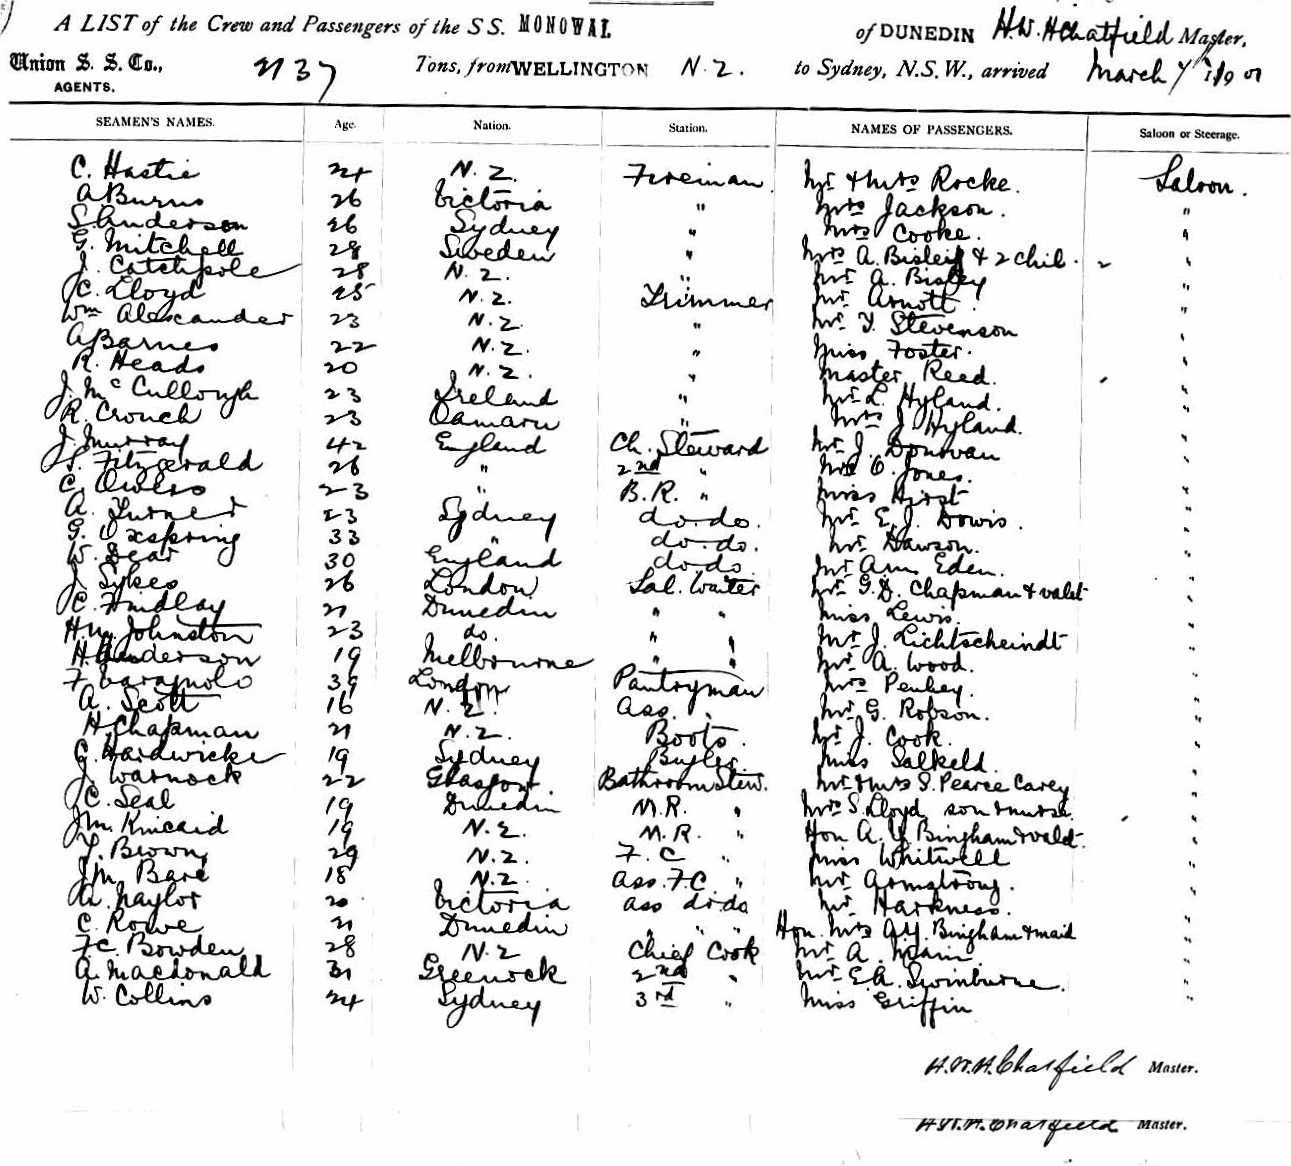 A LIST of the Crew and Passengers of the S S. MONOWAI of DUNEDIN H. W. H Chatfield Master,
Union S. S. Co., 2137 Tons, from WELLINGTON N. Z. to Sydney, N.S.W., arrived March 7th 1901
AGENTS.
SEAMEN'S NAMES. Age. Nation. Station. NAMES OF PASSENGERS. Saloon or Steerage.
C. Hastie 24 N. Z. Fireman Mr & Mrs Rocke. Saloon.
A Burns 26 Victoria " Mrs Jackson. "
S. Anderson 26 Sydney " Mrs Cooke. "
G. Mitchell 28 Sweden " Mrs A. Bisley & 2 chil. "
J. Catchpole 28 N. Z. " Mr A. Bisley "
C. Lloyd 25 N. Z. Trimmer Mr Arnott "
Wm Alexander 23 N. Z. " Mr T. Stevenson "
A Barnes 22 N. Z. " Miss Foster. "
R. Heads 20 N. Z. " Master Reed. "
J. McCullough 23 Ireland " Mr L. Hyland. "
R. Crouch 23 Oamaru " Mrs J. Hyland. "
J. Murray 42 England Ch. Steward Mr J. Donovan "
S. Fitzgerald 26 " 2nd " Mr C. Jones. "
C. Owles 23 " B. R. " Miss Hirst "
A. Turner 23 Sydney do. do. Mr E. J. Dowis. "
G. Oxspring 33 " do. do. Mr Dawson. "
W. Dear 30 England do. do. Mr Arm Eden. "
J. Sykes 26 London Sal. Waiter Mr G. D. Chapman & valet "
C. Findlay 21 Dunedin " " Miss Lewis. "
H. M. Johnston 23 do. " " Mr J. Lichtscheindt "
H. Anderson 19 Melbourne " " Mr A. Wood. "
F 39 London Pantryman Mrs Penhey. "
A. Scott 16 N. Z. Ass. " Mr G. Robson. "
H. Chapman 21 N. Z. Boots. Mr J. Cook. "
G. Hardwicke 19 Sydney Bugler Miss Salkeld. "
J. Warnock 22 Glasgow. Bathroom Stew. Mr & Mrs S. Pearce Carey "
C. Seal 19 Dunedin M. R. " Mrs S. Lloyd son & nurse. "
J M. Kincaid 19 N. Z. M. R. " Hon A. Y. Bingham & valet. "
T. Brown 29 N. Z. F. C " Miss Whitwell "
J M. Bare 18 N. Z. Ass. F. C. " Mr Armstrong. "
A. Naylor 20 Victoria Ass do. do Mr Harkness. "
C. Rowe 21 Dunedin " " " Hon. Mrs A. Y. Bingham & maid "
F. C. Bowden 28 N. Z Chief Cook Mr A. Main "
A. Macdonald 31 Greenock 2nd " Mr E. A. Swinburne. "
W. Collins 24 Sydney 3rd " Miss Griffin "
H. W. H. Chatfield Master.
H. W. H. Chatfield Master.